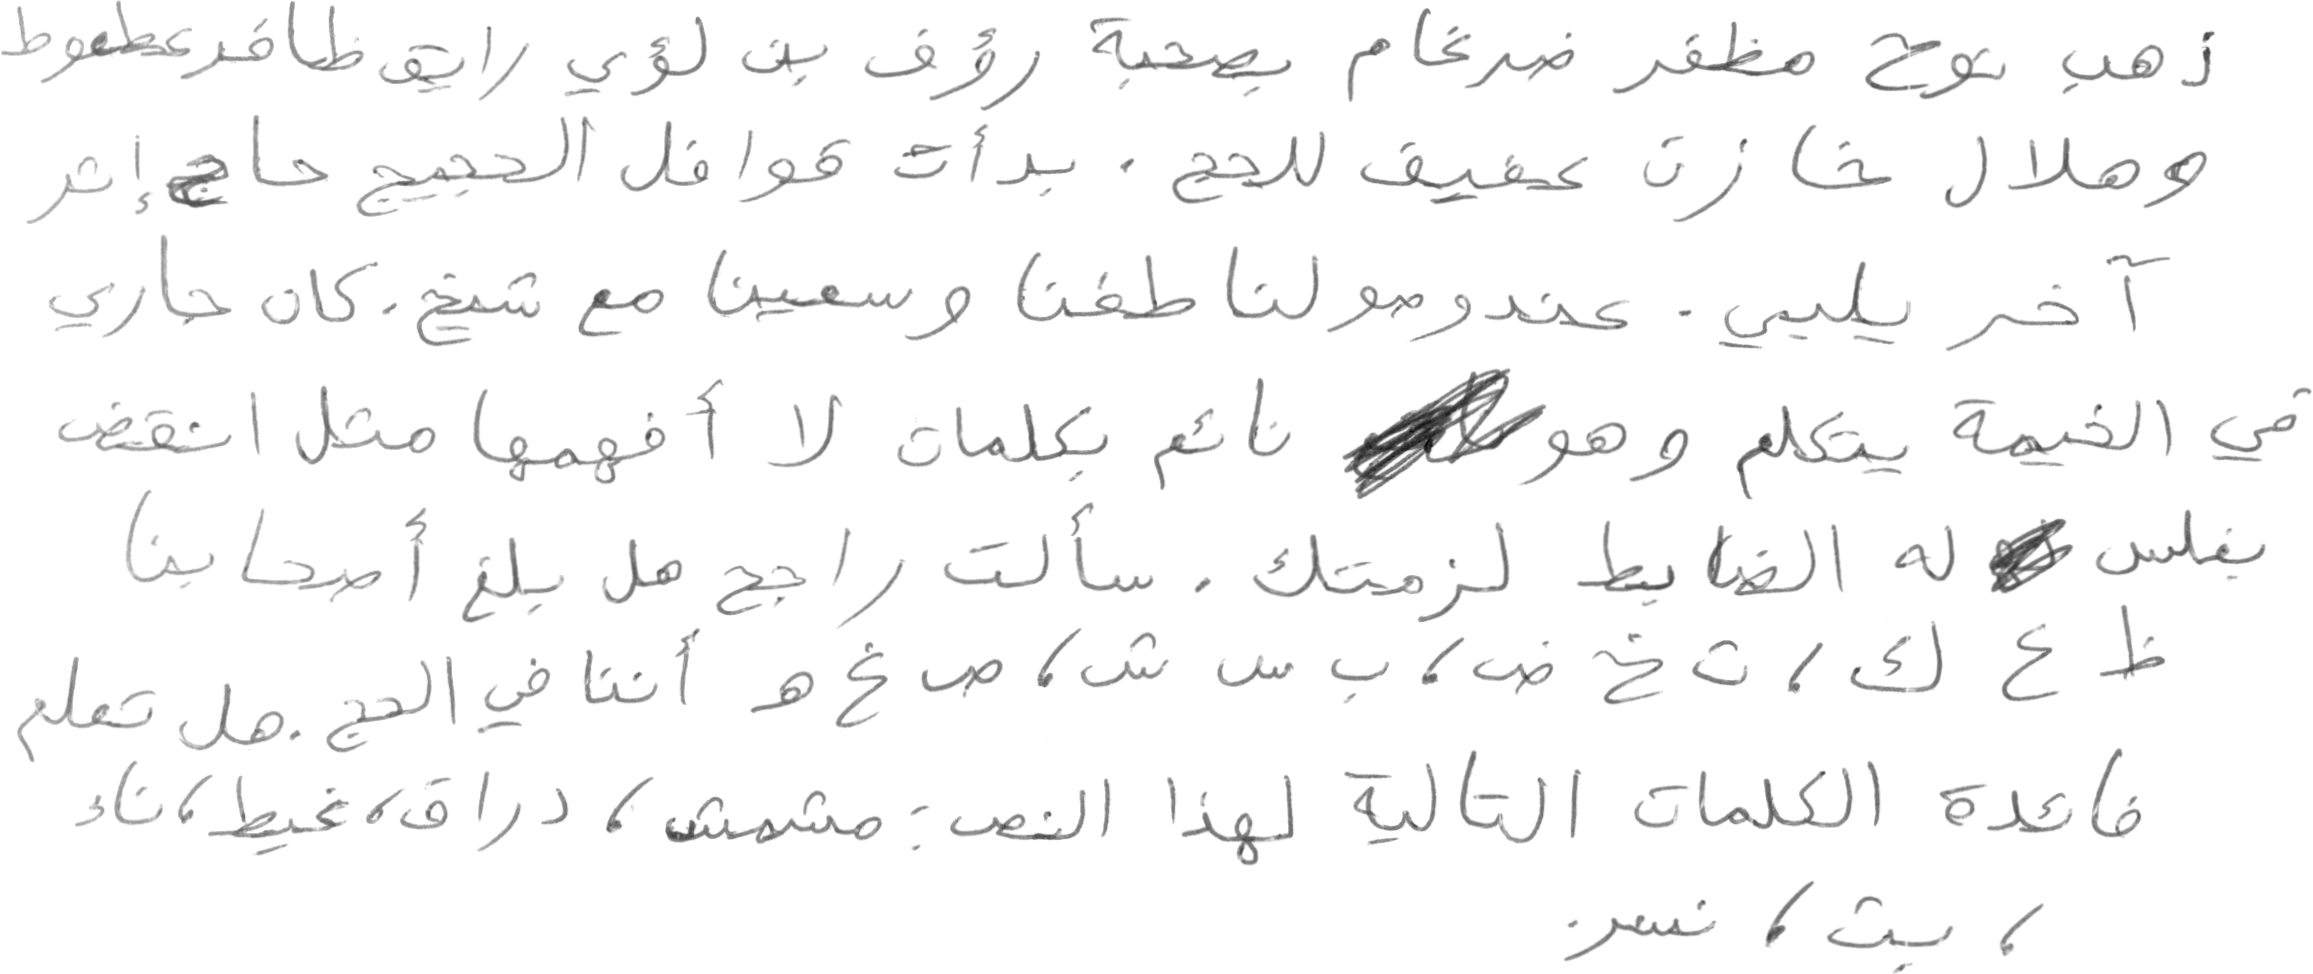 ذهب نوح مظفر ضرغام بصحبة رؤف بن لؤي رايق ظافر عطعوط
وهلال خازن عفيف للحج . بدأت قوافل الحجيج حاج إثر
آخر يلبي . عند وصولنا طفنا وسعينا مع شيخ . كان جاري
في الخيمة يتكلم وهو نائم بكلمات لا أفهمها مثل انقض
بغلس له الضابط لزمتك . سألت راجح هل بلغ أصحابنا
ظ ع ك ، ث خ ض ، ب س ش ، ص غ هـ أننا في الحج . هل تعلم
فائدة الكلمات التالية لهذا النص : مشمش ، دراق ، غيط ، ناء
، بيت ، نسر .